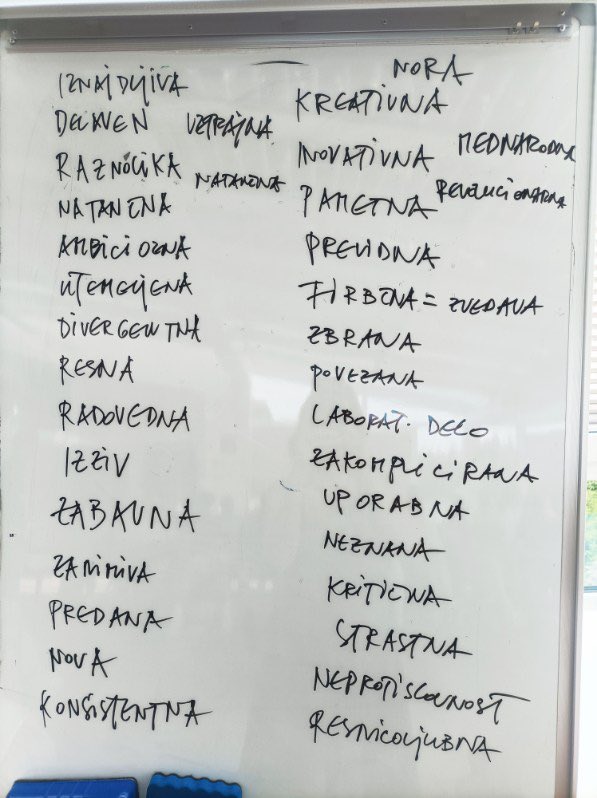 IZNAJDLJIVA
DELAVEN VZTRAJNA
RAZNOLIKA NATANČNA
NATANČNA
AMBICIOZNA
UTEMELJENA
DIVERGENTNA
RESNA
RADOVEDNA
IZZIV
ZABAVNA
ZANIMIVA
PREDANA
NOVA
KONSISTENTNA
NORA
KREATIVNA
INOVATIVNA MEDNARODNA
PAMETNA REVOLUCIONARNA
PREVIDNA
FIRBČNA = ZVEDAVA
ZBRANA
POVEZANA
LABORAT. DELO
ZAKOMPLICIRANA
UPORABNA
NEZNANA
KRITIČNA
STRASTNA
NEPROTISLOVNOST
RESNICOLJUBNA